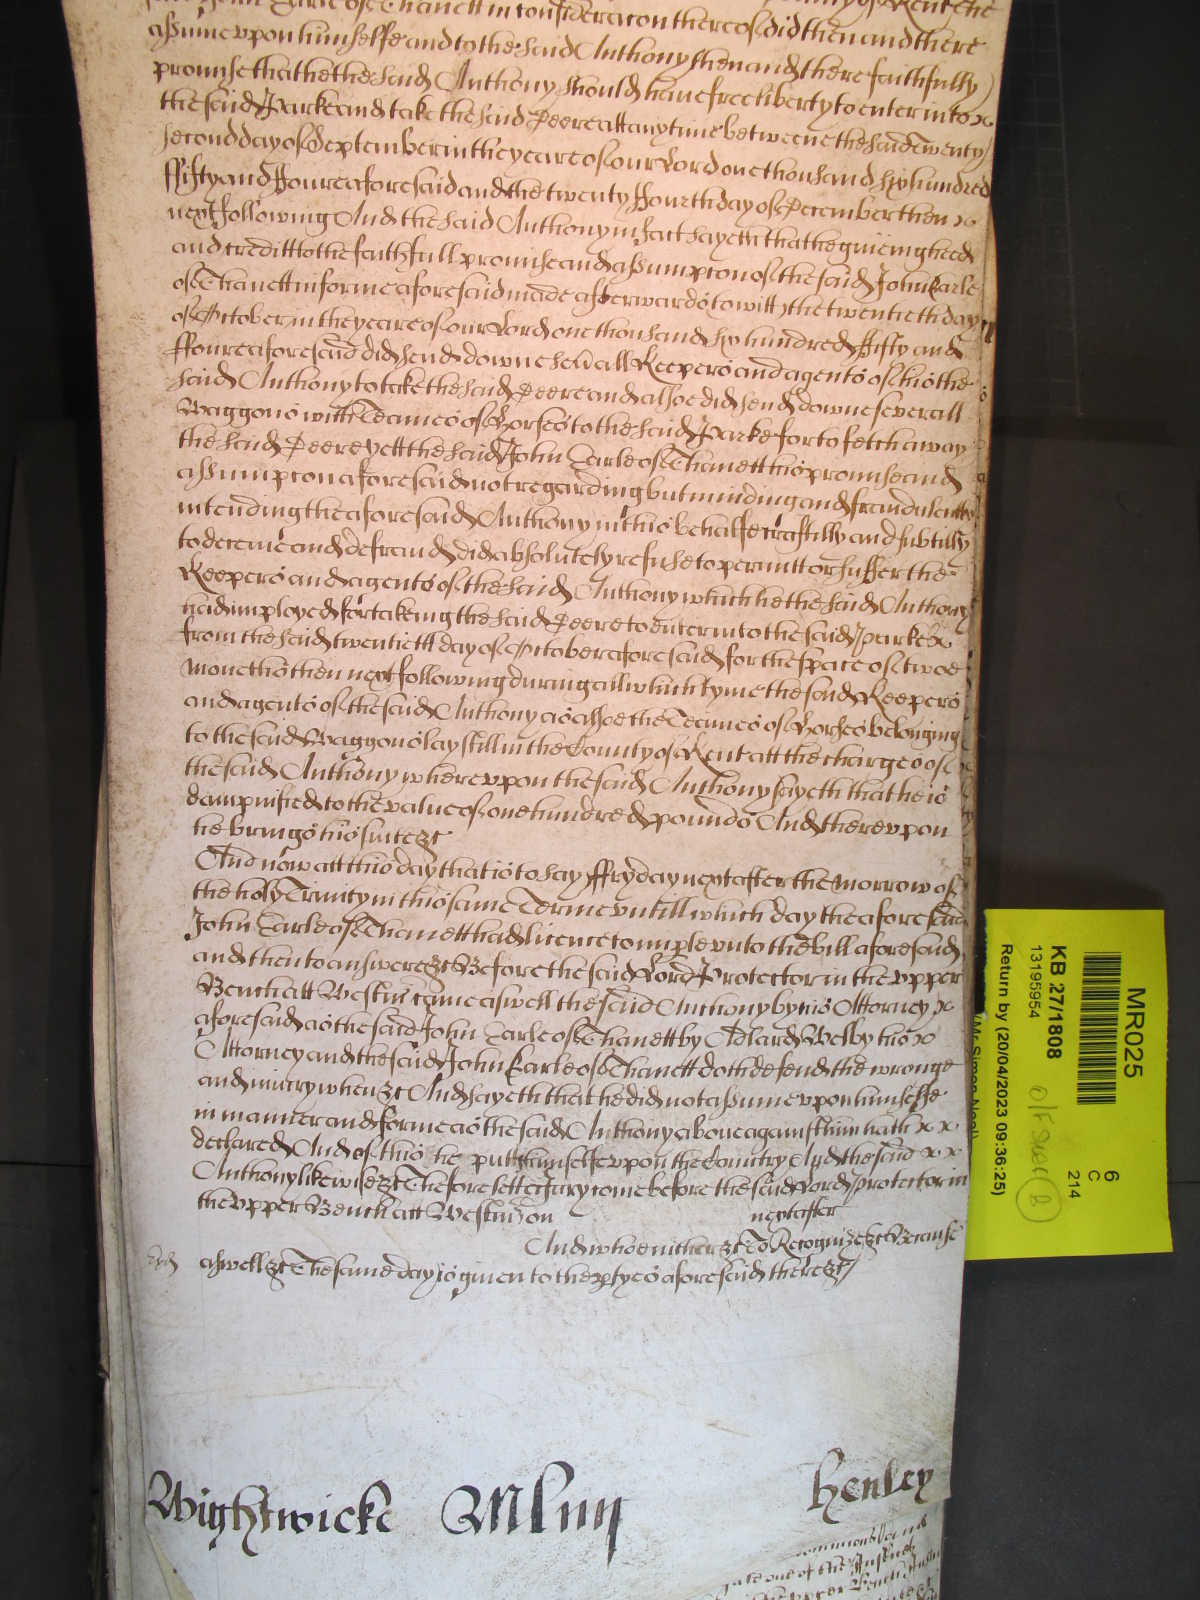 said John Earle of Thanett in consideracon thereof did then and there
assume vpon himselfe and to the said Anthony then and there faithfully
promise that he the said Anthony should haue free liberty to enter into
the said Parke and take the said Deere att any time betweene the said Twenty
second day of September in the yeare of our Lord one thousand six hundred
ffifty and ffoure aforesaid and the twenty ffourth day of December then
next following And the said Anthony in fact sayeth that he giueing heed
and creditt to the faithfull promise and assumpcon of the said John Earle
of Thanett in forme aforesaid made afterwards to witt the twentieth day
of October in the yeare of our Lord one thousand six hundred ffifty and
ffoure aforesaid did send downe seu'all Keepers and agents of his the
said Anthony to take the said Deere and alsoe did send downe severall
Waggons with Teames of Horses to the said Parke for to fetch away
the said Deere yett the said John Earle of Thanett his promise and
assumpcon aforesaid not regarding but minding and fraudulently
intending the aforesaid Anthony in this behalfe craftilly and subtilly
to deceive and defraud did absolutely refuse to permitt or suffer the
Keepers and agents of the said Anthony which he the said Anthony
had imployed for takeing the said Deere to enter into the said parke
from the said twentieth day of October aforesaid for the space of twoe
moneths then next following during all which tyme the said Keepers
and agents of the said Anthony as alsoe the Teames of Horses belonging
to the said Waggons lay still in the County of Kent att the charge of
the said Anthony wherevpon the said Anthony sayeth that he is
dampnified to the value of one hundred pounds And therevpon
he brings his suite &c
And now att this day that is to say ffryday next after the Morrow of
the holy Trinity in this same Terme vntill which day the aforesaid
John Earle of Thanett had licence to imple vnto the bill aforesaid
and then to answere &c Before the said Lord Protector in the vpper
Bench att Westm' came aswell the said Anthony by his Attorney
aforesaid as the said John Earle of Thanett by Adlard Welby his
Attorney and the said John Earle of Thanett doth defend the wronge
and iniury when &c And sayeth that he did not assume vpon himselfe
in manner and forme as the said Anthony aboue against him hath
declared And of this he putts himselfe vpon the Country And the said
Anthony likewise &c Therefore lett a Jury come before the said Lord Protector in
the vpper Bench att Westm' on next after
And who neither &c To Recognize &c Because
aswell &c The same day is giuen to the ptyes aforesaid there &c
Wightwicke Henley
MR025
KB 27/1808
13195954
Return by (20/04/2023 09:36:25)
6
C
214